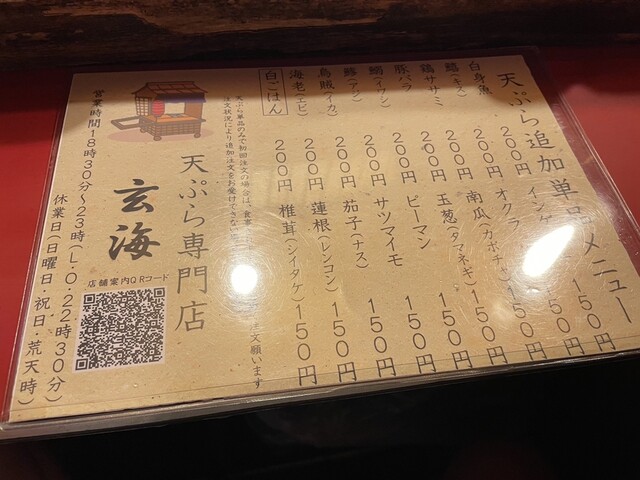 天ぷら追加単品メニュー
白身魚 200円 インゲ 150円
鱚(キス) 200円 オクラ 150円
鶏ササミ 200円 南瓜(カボチャ) 150円
豚バラ 200円 玉葱(タマネギ) 150円
鰯(イワシ) 200円 ピーマン 150円
鯵(アジ) 200円 サツマイモ 150円
烏賊(イカ) 200円 茄子(ナス) 150円
海老(エビ) 200円 蓮根(レンコン) 150円
白ごはん 200円 椎茸(シイタケ) 150円
天ぷら単品のみで初回注文の場合は、食事
注文状況により追加注文をお受けできない 注文願います
天ぷら専門店
玄海
店舗案内QRコード
営業時間18時30分~23時(L.O.22時30分)
休業日(日曜日・祝日・荒天時)